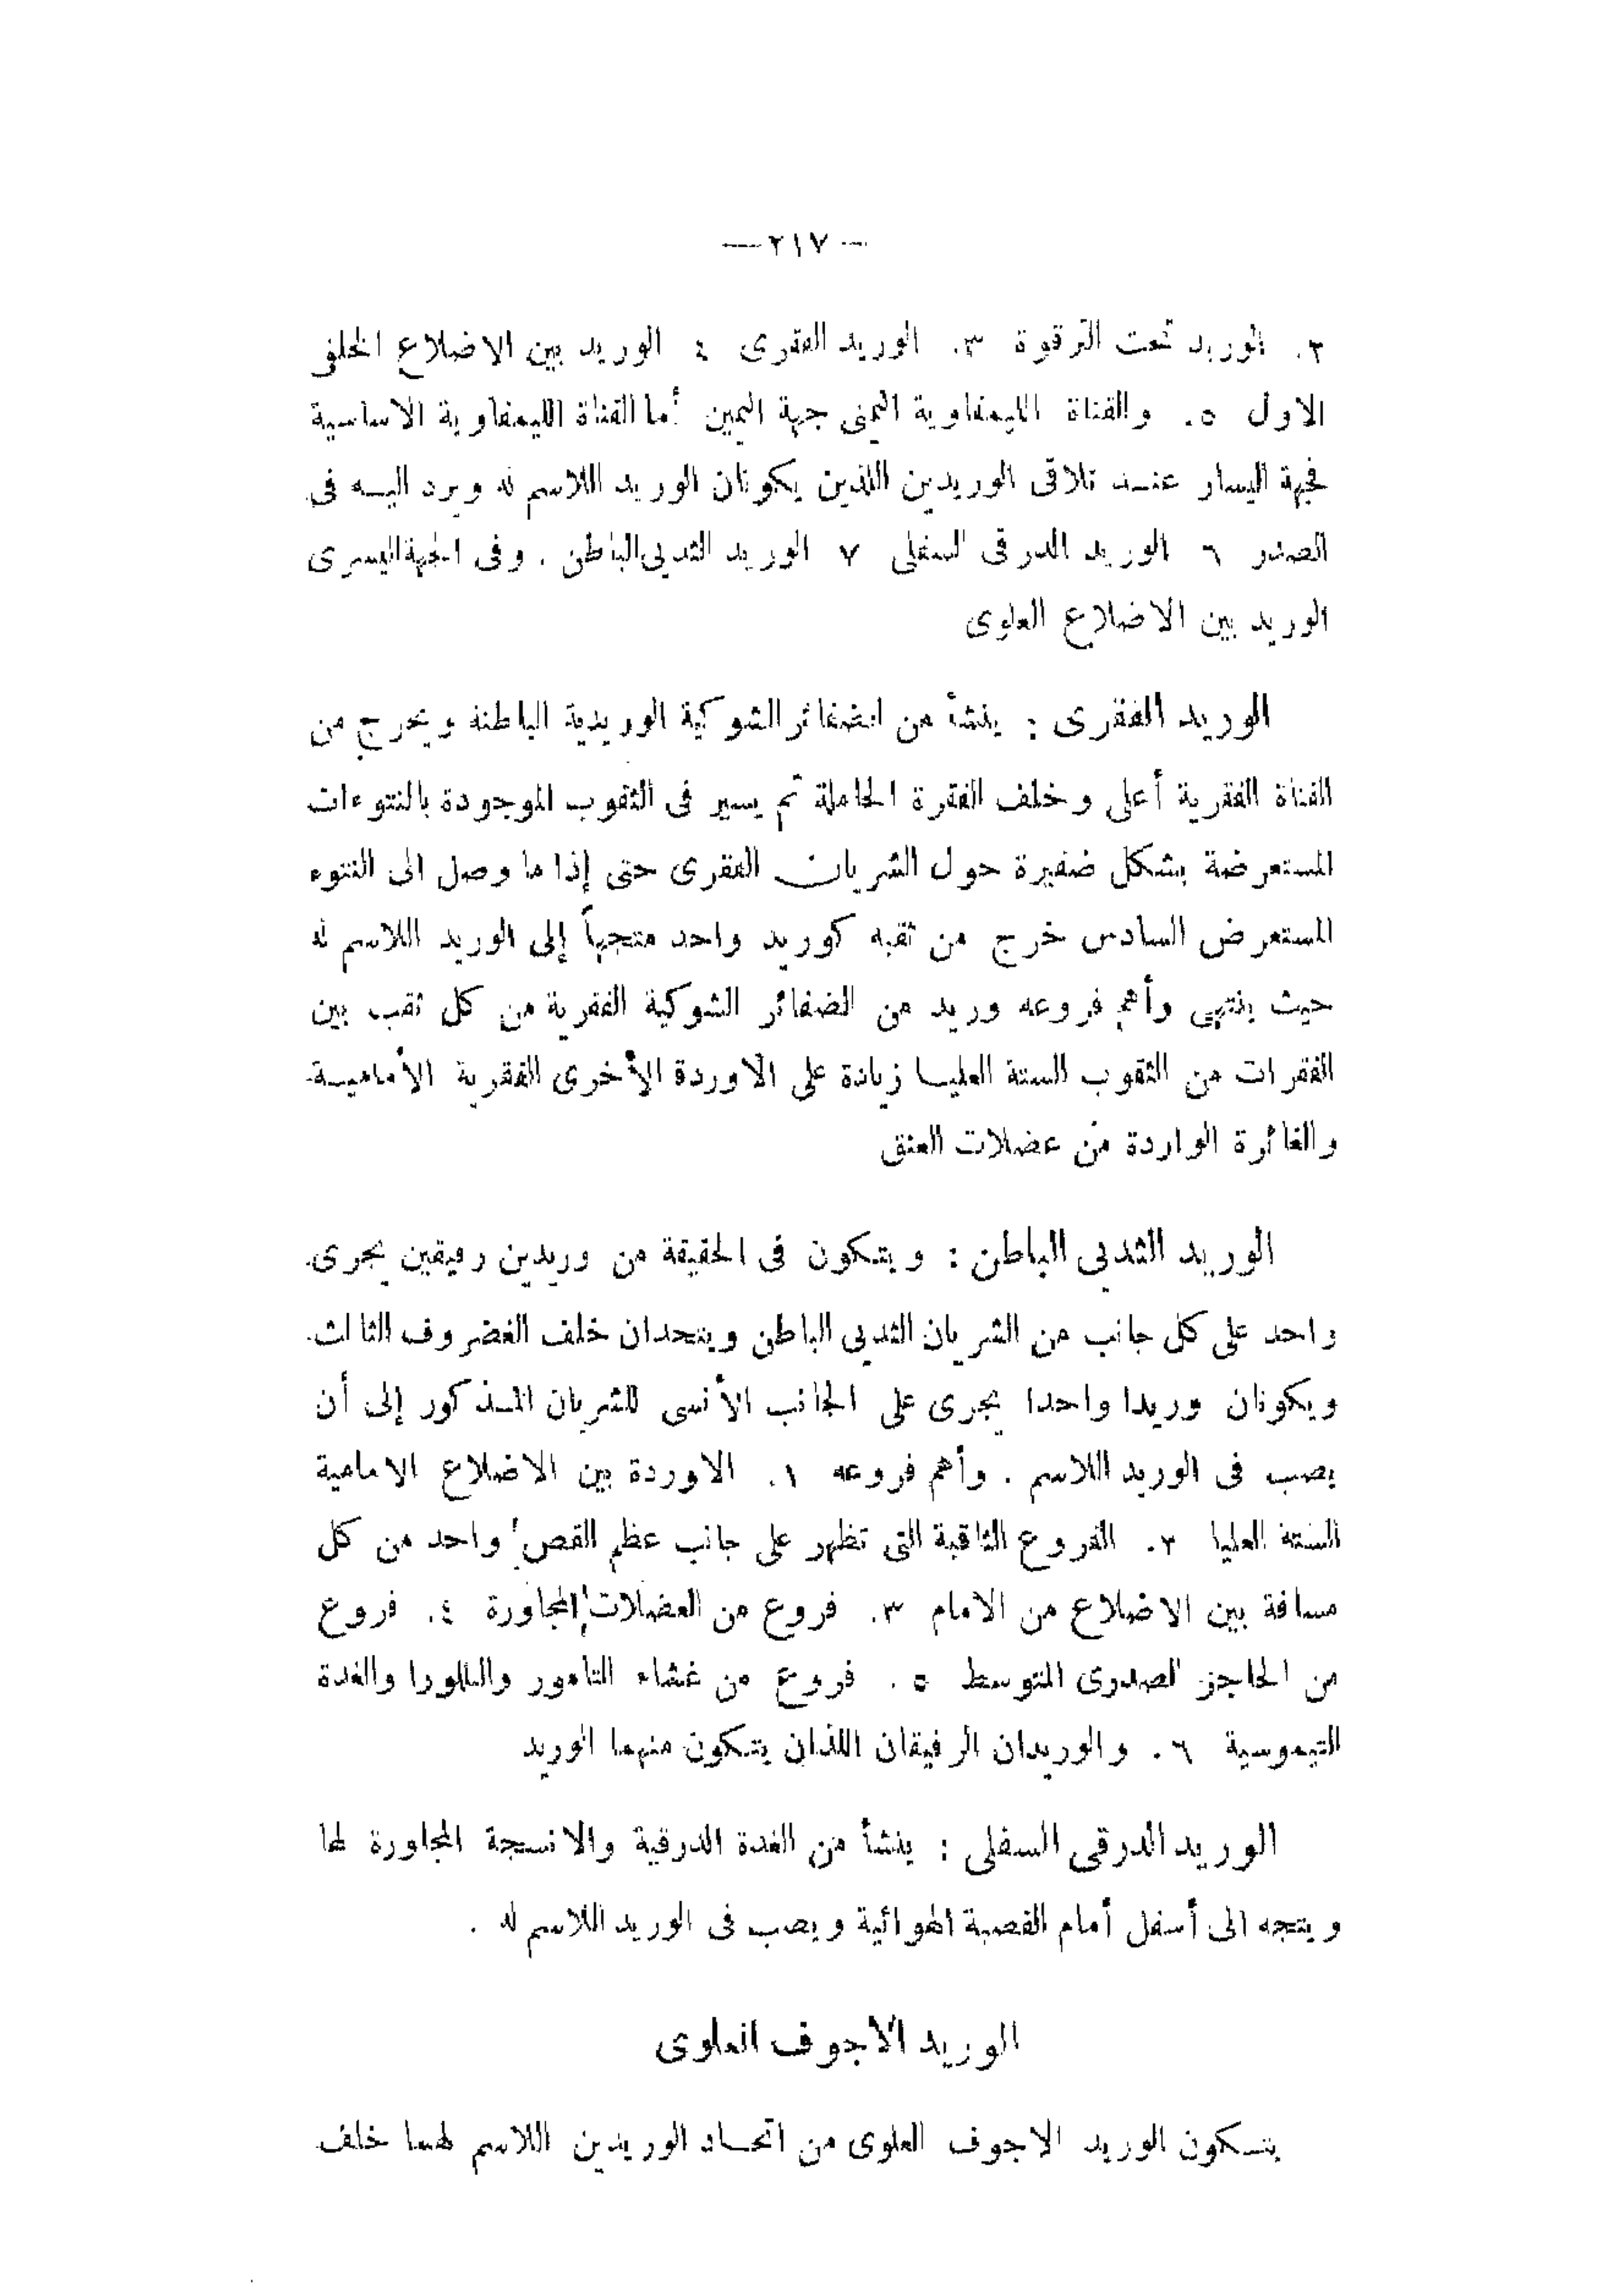 — ٢١٧ —
٢. الوريد تحت الترقوة ٣. الوريد الفقرى ٤ الوريد بين الاضلاع الخلفى
الاول ٥. والقناة الليمفاوية اليمنى جهة اليمين أما القناة الليمفاوية الاساسية
فجهة اليسار عند تلاقى الوريدين اللذين يكونان الوريد اللاسم له ويرد اليه فى
الصدر ٦ الوريد الدرقى السفلى ٧ الوريد الثديى الباطن . وفى الجهة اليسرى
الوريد بين الاضلاع العلوى
الوريد الفقرى : ينشأ من الضفائر الشوكية الوريدية الباطنة ويخرج من
القناة الفقرية أعلى وخلف الفقرة الحاملة ثم يسير فى الثقوب الموجودة بالنتوءات
المستعرضة بشكل ضفيرة حول الشريان الفقرى حتى إذا ما وصل الى النتوء
المستعرض السادس خرج من ثقبه كوريد واحد متجهاً إلى الوريد اللاسم له
حيث ينتهى وأهم فروعه وريد من الضفائر الشوكية الفقرية من كل ثقب بين
الفقرات من الثقوب الستة العليا زيادة على الاوردة الأخرى الفقرية الأمامية
والغائرة الواردة من عضلات العنق
الوريد الثديى الباطن : ويتكون فى الحقيقة من وريدين رفيقين يجرى
واحد على كل جانب من الشريان الثديى الباطن ويتحدان خلف الغضروف الثالث
ويكونان وريدا واحدا يجرى على الجانب الأنسى للشريان المذكور إلى أن
يصب فى الوريد اللاسم . وأهم فروعه ١. الاوردة بين الاضلاع الامامية
الستة العليا ٢. الفروع الثاقبة التى تظهر على جانب عظم القص واحد من كل
مسافة بين الاضلاع من الامام ٣. فروع من العضلات المجاورة ٤. فروع
من الحاجز الصدرى المتوسط ٥ . فروع من غشاء التامور والبللورا والغدة
التيموسية ٦. والوريدان الرفيقان اللذان يتكون منهما الوريد
الوريد الدرقى السفلى : ينشأ من الغدة الدرقية والانسجة المجاورة لها
ويتجه الى أسفل أمام القصبة الهوائية ويصب فى الوريد اللاسم له .
الوريد الاجوف العلوى
يتكون الوريد الاجوف العلوى من اتحاد الوريدين اللاسم لهما خلف